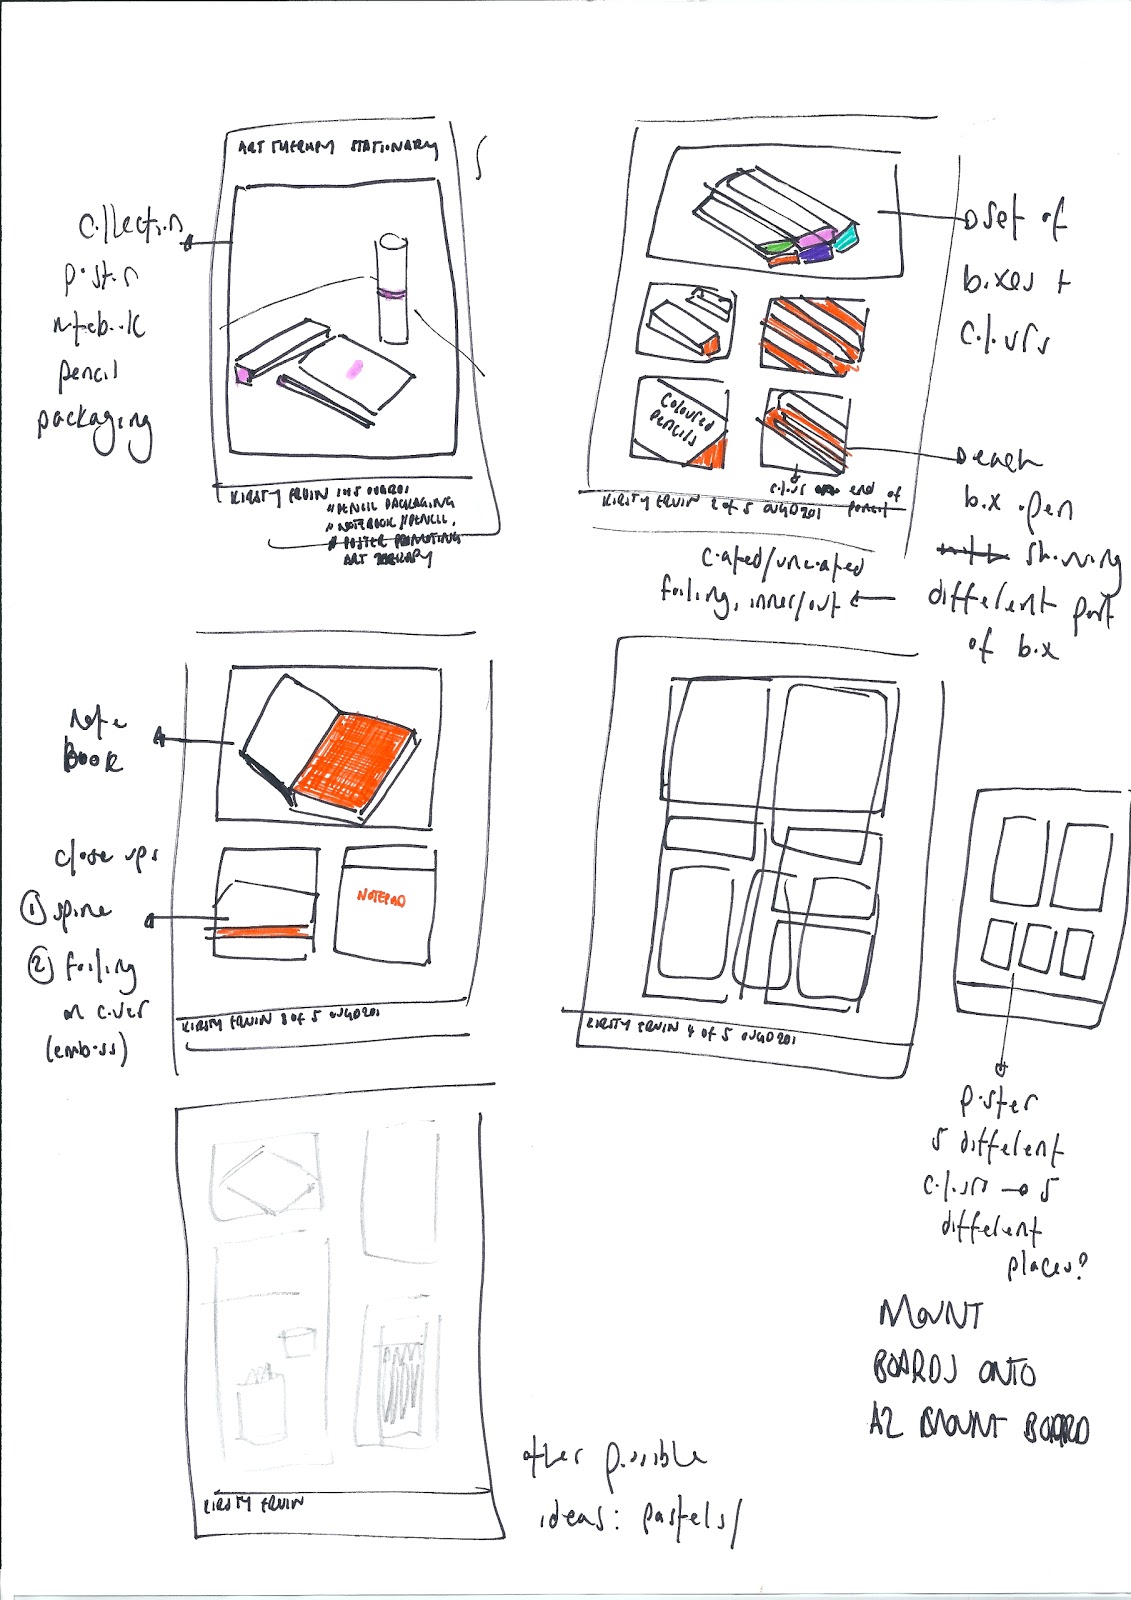 ART THERAPY STATIONARY
Collection
poster
notebook
pencil
packaging
KIRSTY ERVIN 1 of 5 OUGD201
// PENCIL PACKAGING
// NOTEBOOK // PENCIL,
// POSTER PROMOTING
ART THERAPY
set of
boxes +
colours
Coloured
pencils
colour end of
pencil
KIRSTY ERVIN 2 of 5 OUGD201
each
box open
showing
different part
of box
coated/uncoated
foiling, inner/out
note
BOOK
close ups
① spine
② foiling
on cover
(emboss)
NOTEPAD
KIRSTY ERVIN 3 of 5 OUGD201
KIRSTY ERVIN 4 of 5 OUGD201
poster
5 different
colours → 5
different
places?
MOUNT
BOARDS ONTO
A2 MOUNT BOARD
KIRSTY ERVIN
other possible
ideas: pastels/